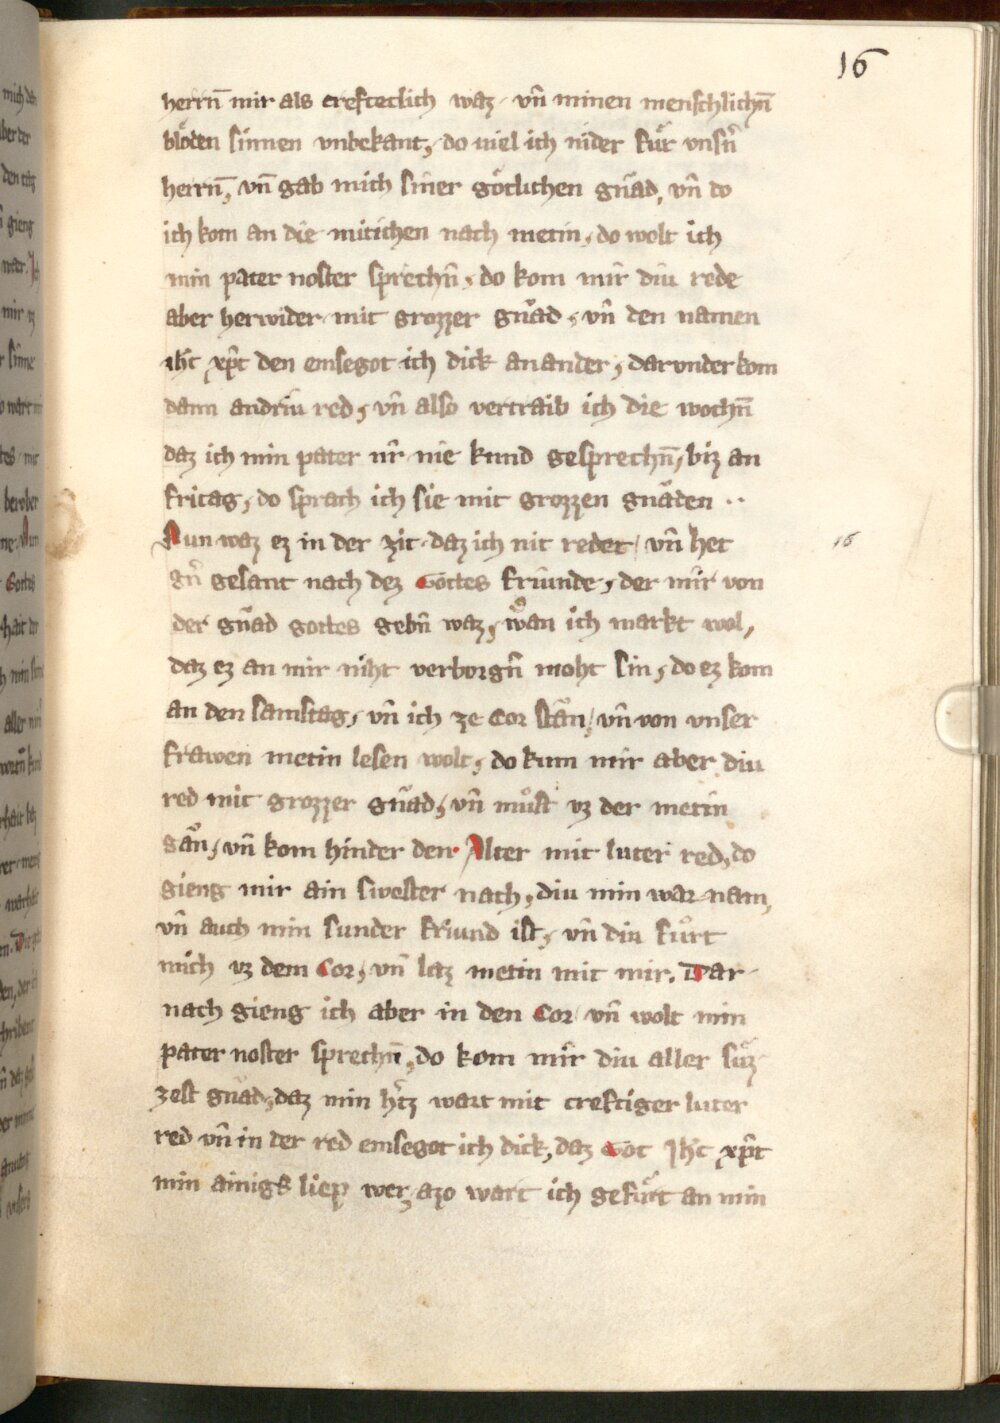 16
herrn̄ mir als creftetlich waz · vn̄ minen menschlichn̄
blöden sinnen vnbekant, do viel ich nider für vnsn̄
herrn̄, vn̄ gab mich siner götlichen gnad, vn̄ do
ich kom an die mitichen nach metin, do wolt ich
min pater noster sprechn̄, do kom mir diu rede
aber herwider mit grozzer gnad, vn̄ den namen
ihc xpc den emsegot ich dick anander, darvnder kom
dann andriu red, vn̄ also vertraib ich die wochn̄
daz ich min pater nr̄ nie kund gesprechn̄, biz an
fritag, do sprach ich sie mit grozzen gnaden ··
Nun waz ez in der zit · daz ich nit redet / vn̄ het
16
gn̄ gesant nach dez Gottes friunde, der mir von
der gnad gottes gebn̄ waz, wan ich markt wol,
daz ez an mir niht verborgn̄ moht sin, do ez kom
an den samstag, vn̄ ich ze Cor stan / vn̄ von vnser
frawen metin lesen wolt, do kum mir aber diu
red mit grozzer gnad, vn̄ muͦst vz der metin
gan, vn̄ kom hinder den Alter mit luter red, do
gieng mir ain swester nach, diu min war nam,
vn̄ auch min sunder friund ist, vn̄ diu fuͦrt
mich vz dem Cor, vn̄ laz metin mit mir. Dar
nach gieng ich aber in den Cor / vn̄ wolt min
pater noster sprechn̄, do kom mir diu aller süz
zest gnad, daz min hͨtz wart mit creftiger luter
red vn̄ in der red emsegot ich dick, daz Got Jhc xpc
min ainigs liep wer, azo wart ich gefürt an min